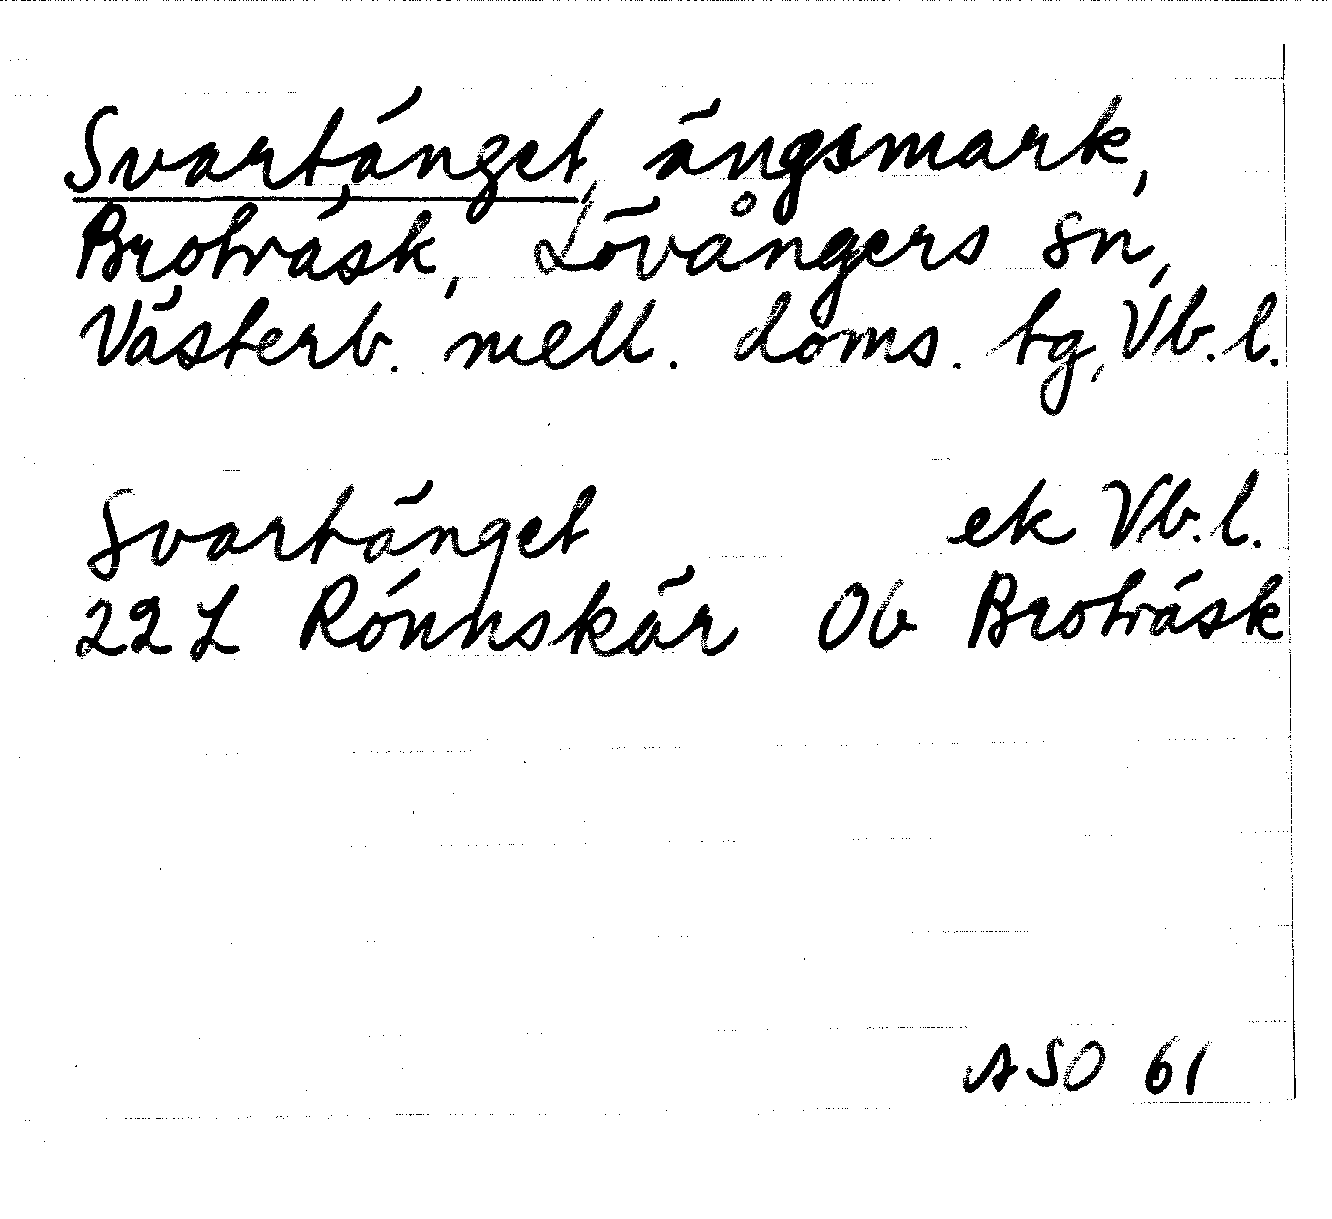 Svartänget, ängsmark,
Broträsk, Lövångers sn,
Västerb. mell. doms. tg, Vb. l.
Svartänget ek Vb. l.
22 L Rönnskär Ob Broträsk
ASO 61